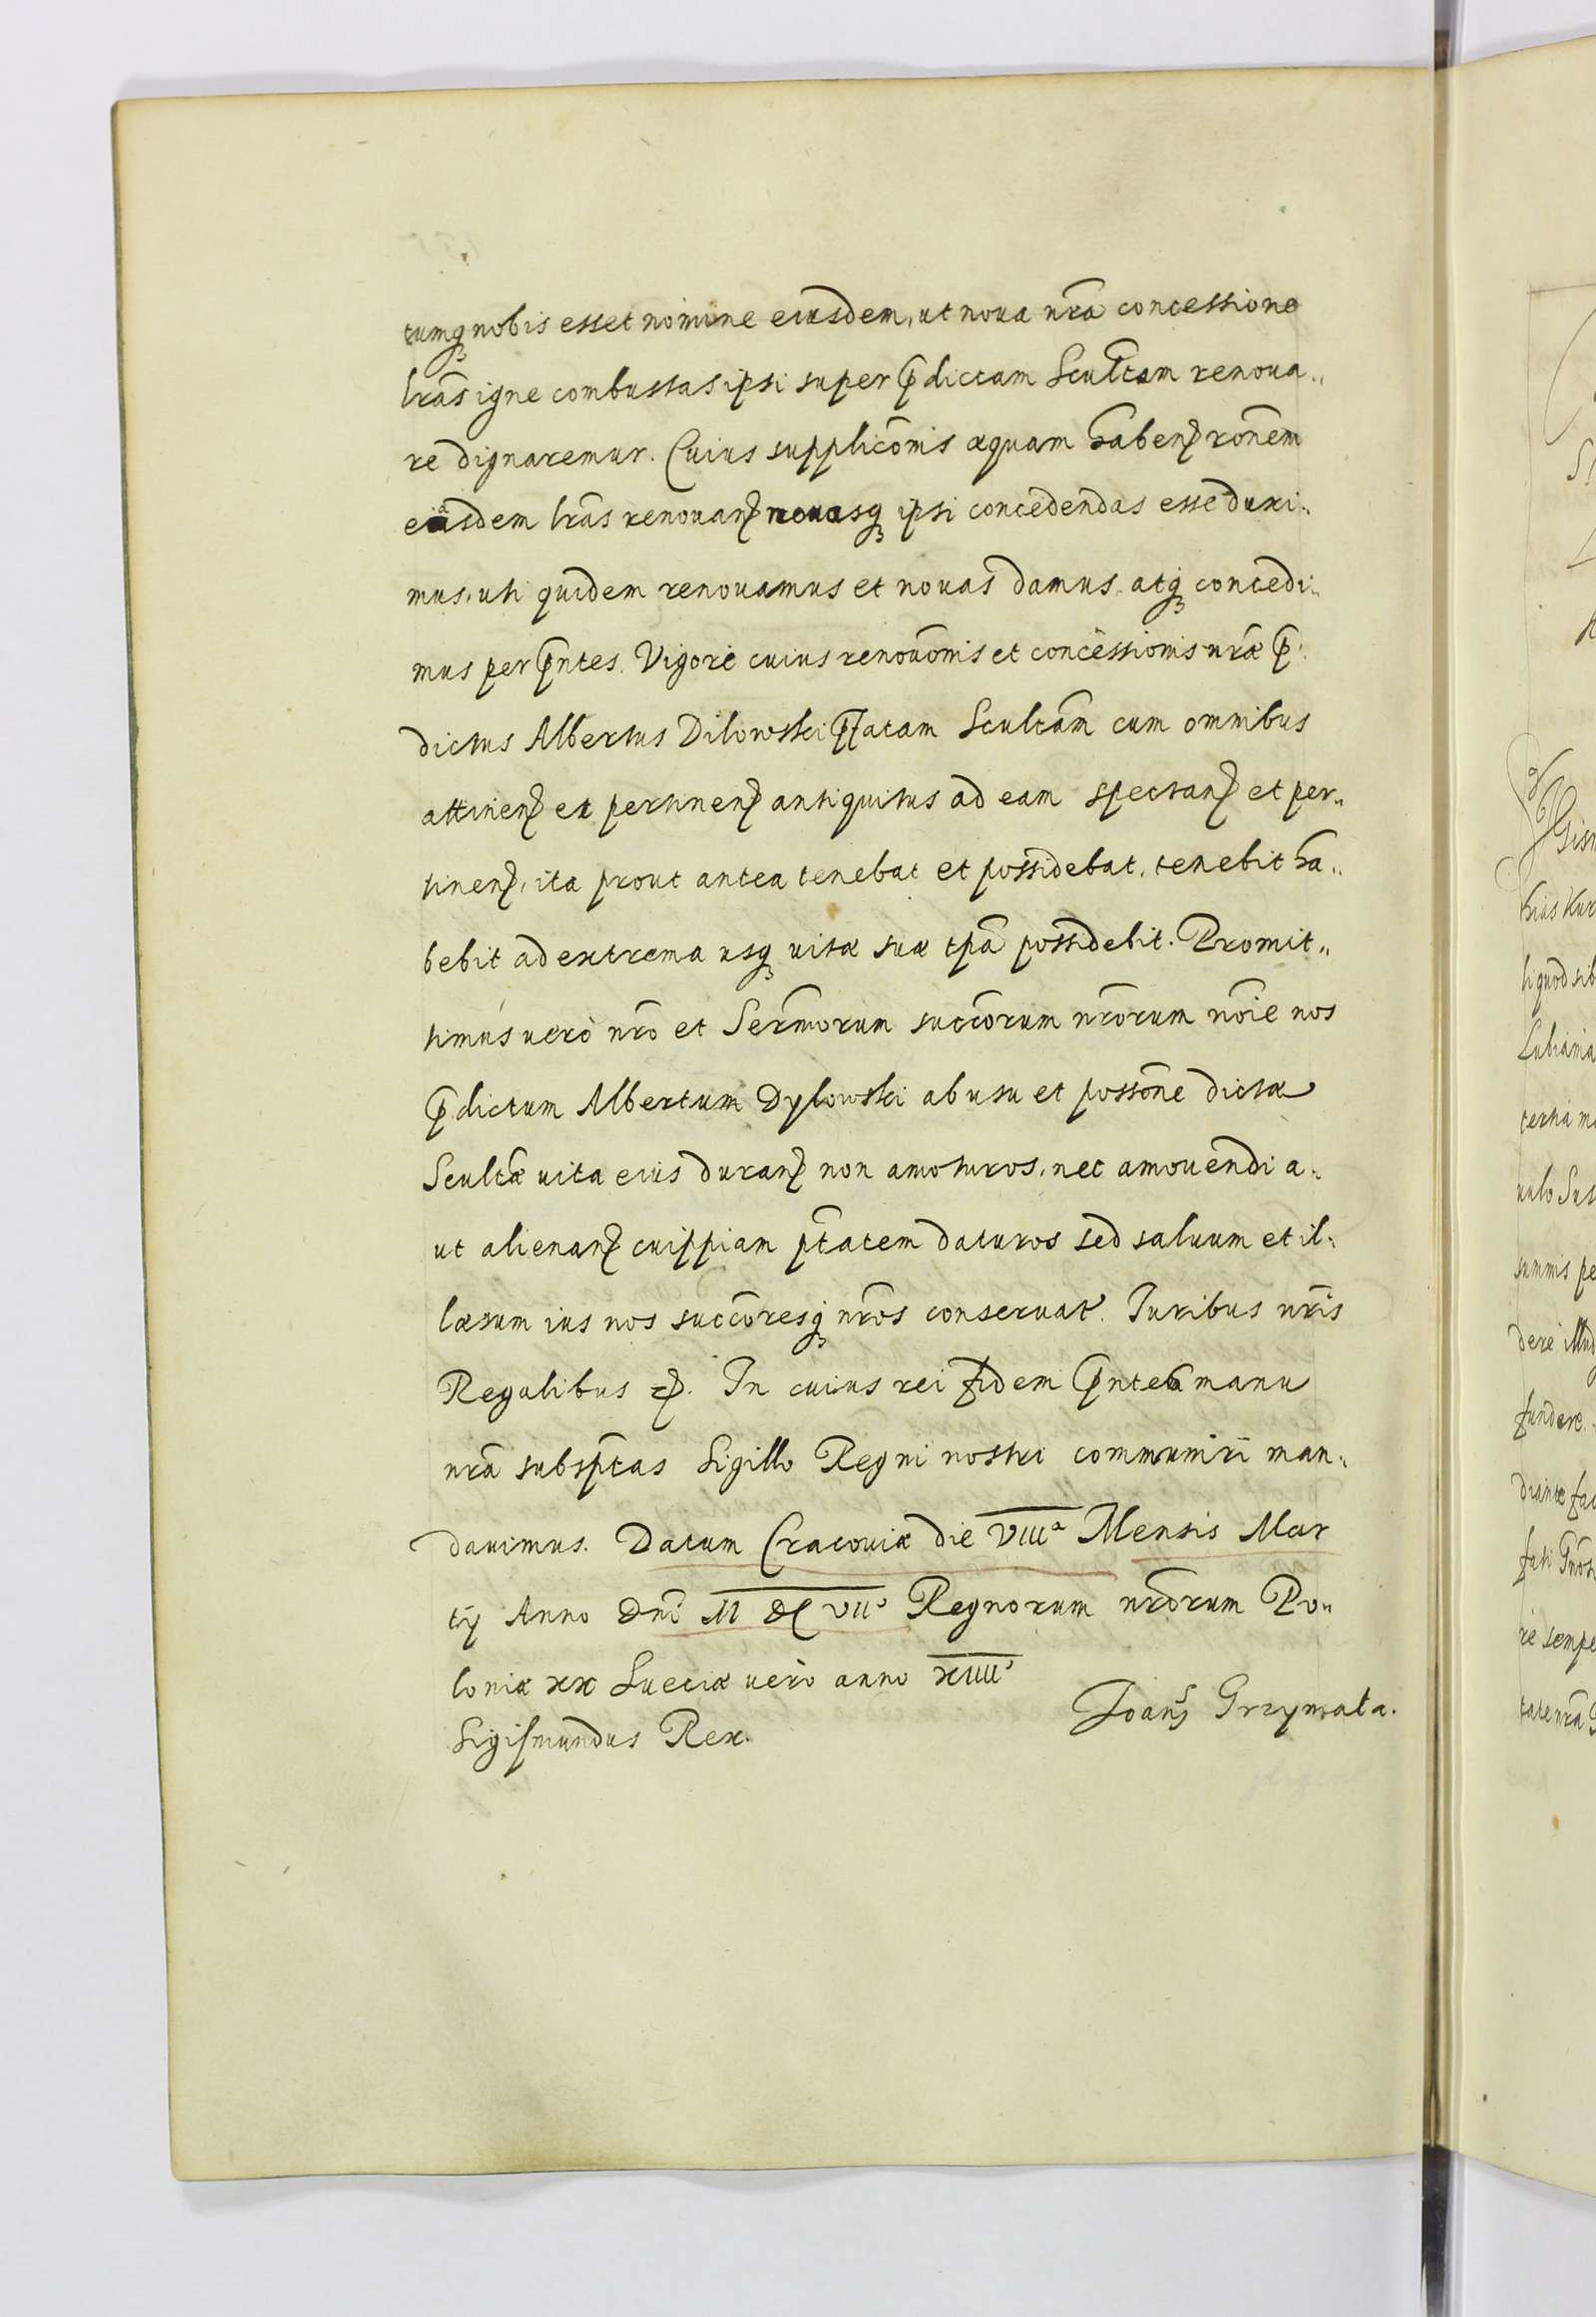 tumq₃ nobis esset nomine eiusdem, ut noua nr̃a concessione
lr̃as igne combustas ipsi super p̃dictam Scultam̃ renoua„
re dignaremur. Cuius supplicõnis æquam hãbenꝫ rõnem
easdem lr̃as renouanꝫ nouasq₃ ipsi concedendas esse duxi„
mus, uti quidem renouamus et nouas damus atq₃ concedi„
mus per p̃ntes. Vigore cuius renouõnis et concessionis nr̃æ p̃„
dictus Albertus Dilowski p̃fatam Scultam̃ cum omnibus
attinenꝫ et pertinenꝫ antiquitus ad eam spectanꝫ et per„
tinenꝫ, ita prout antea tenebat et possidebat, tenebit ha„
bebit ad extrema usq₃ uitæ suæ tp̃a possidebit. Promit„
timus uerò nr̃o et Serm̃orum succõrum nr̃orum nõie nos
p̃dictum Albertum Dylowski ab usu et possõne dictæ
Scultæ̃ uita eius duranꝫ non amoturos, nec amouendi a„
ut alienanꝫ cuippiam ptãtem daturos sed saluum et il„
læsum ius nos succõresq₃ nr̃os conseruat. Iuribus nr̃is
Regalibus ꝛꝫ. In cuius rei fidem p̃ntes manu
nr̃a subsp̃tas Sigillo Regni nostri communiri man„
dauimus. Datum Cracouiæ die VIIIᵃ Mensis Mar
tij Anno Dnĩ M DC VIIᵒ Regnorum nr̃orum Po„
loniæ xx Sueciæ uerò anno XIIIIᵒ
Sigismundus Rex.
Joanꝫ Grzymała.